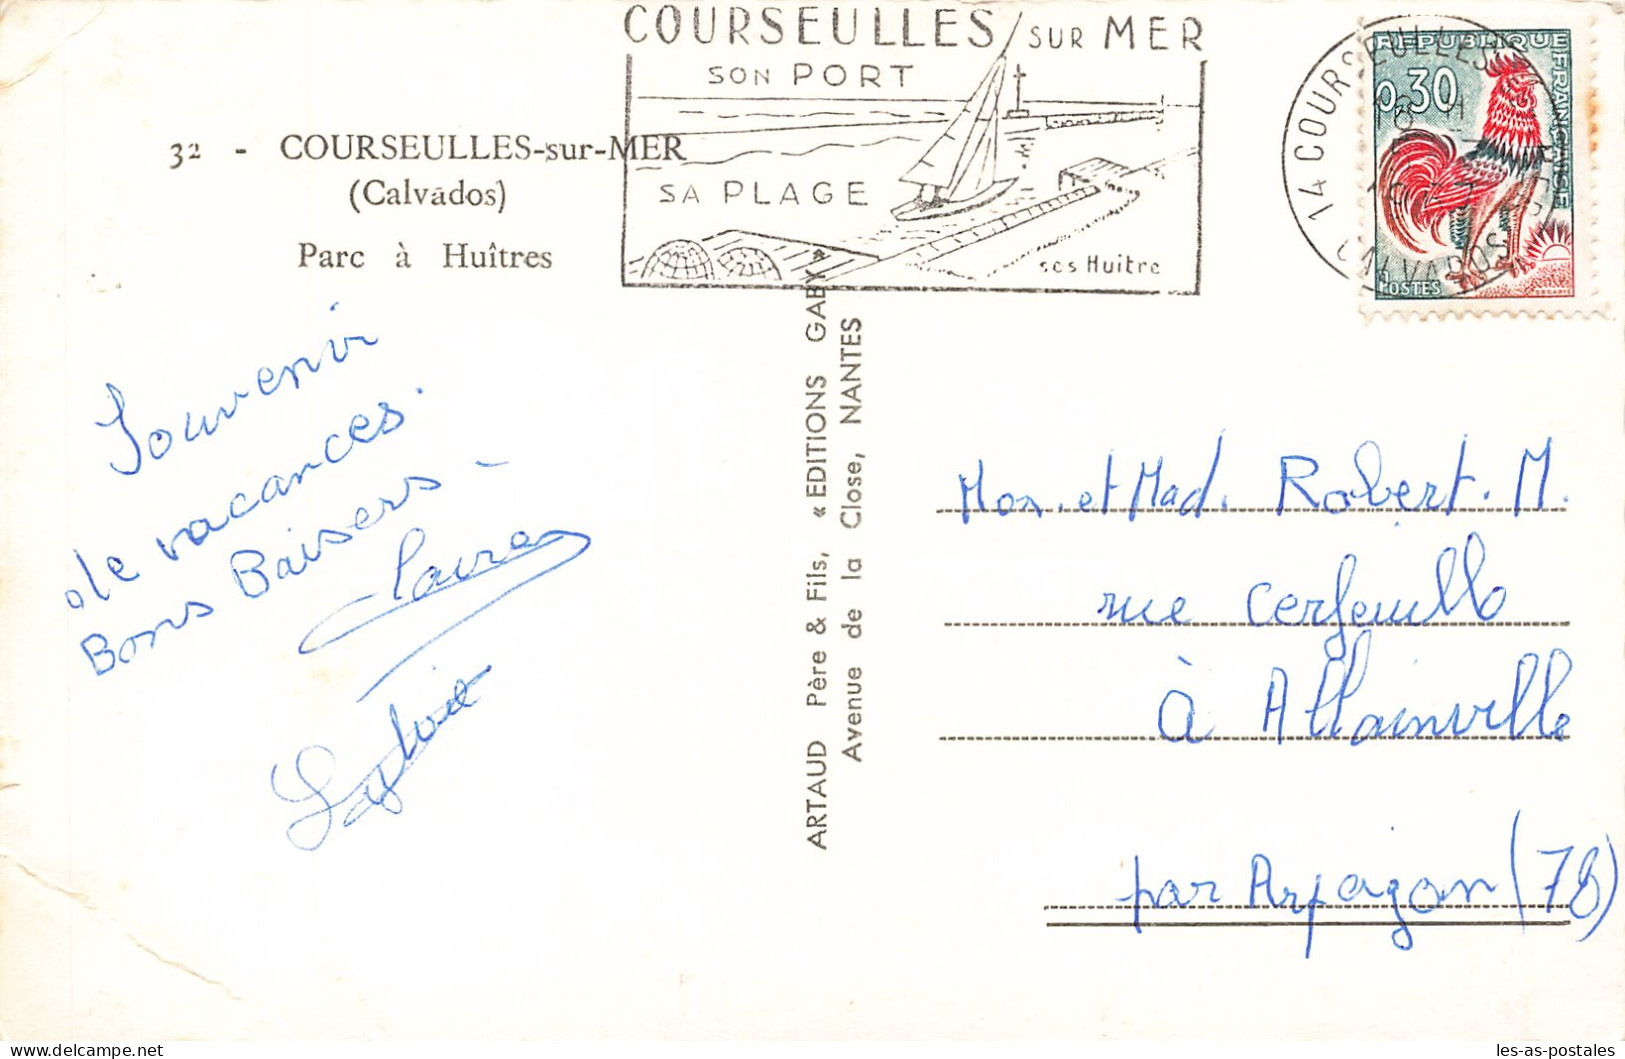 COURSEULLES SUR MER
SON PORT
SA PLAGE
ses Huitre
REPUBLIQUE FRANÇAISE
0,30
POSTES
14 COURSEULLES
CALVADOS
32 - COURSEULLES-sur-MER
(Calvados)
Parc à Huîtres
Souvenir
de vacances.
Bons Baisers -
Sylvie
ARTAUD Père & Fils, « EDITIONS GABY »
Avenue de la Close, NANTES
Mon. et Mad. Robert. M.
rue Cerfeuille
à Allainville
par Arpagon (78)
les-as-postales